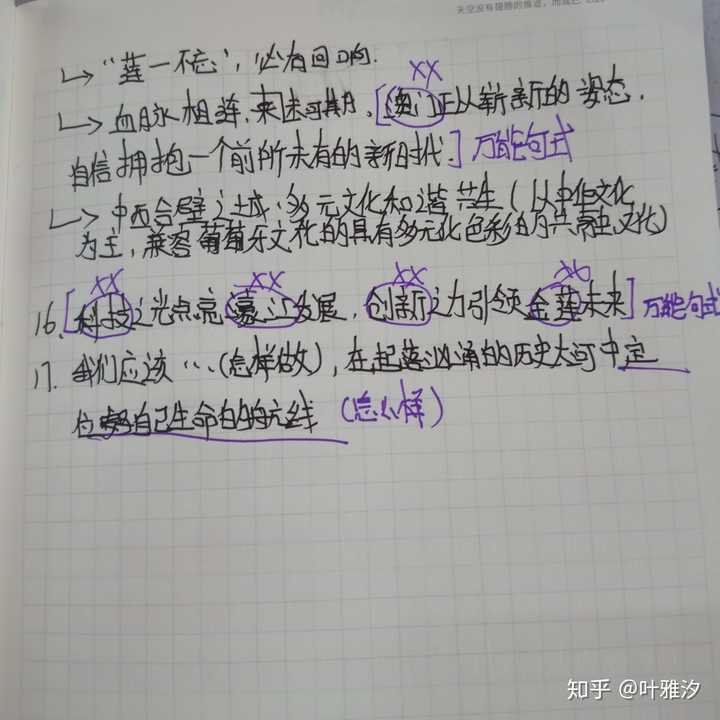 天空没有翅膀的痕迹，而我已
↳ “莲一不忘”，必有回响.
XX
↳ 血脉相连，来未可期，[澳门正从崭新的姿态，
自信拥抱一个前所未有的新时代] 万能句式
↳ 中西合壁之城，多元文化和谐共生（以中华文化
为主，兼容葡萄牙文化的具有多元化色彩的共融文化）
XX XX XX XX
16. [科技之光点亮濠江发展，创新之力引领金莲未来] 万能句式
17. 我们应该…（怎样做），在起落汹涌的历史大河中定
位自己生命的航线（怎么样）
知乎 @叶雅汐